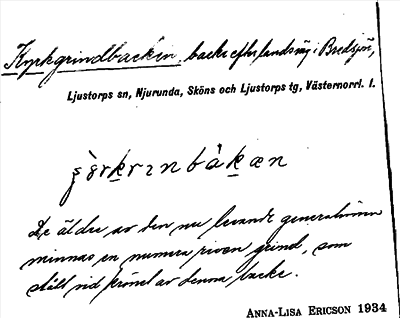 Kyrkgrindbacken, backe efter landsväg i Bredsjön,
Ljustorps sn, Njurunda, Sköns och Ljustorps tg, Västernorrl. l.
De äldre av den nu levande generationen
minnas en numera riven grind, som
ställt vid krönet av denna backe.
ANNA-LISA ERICSON 1934